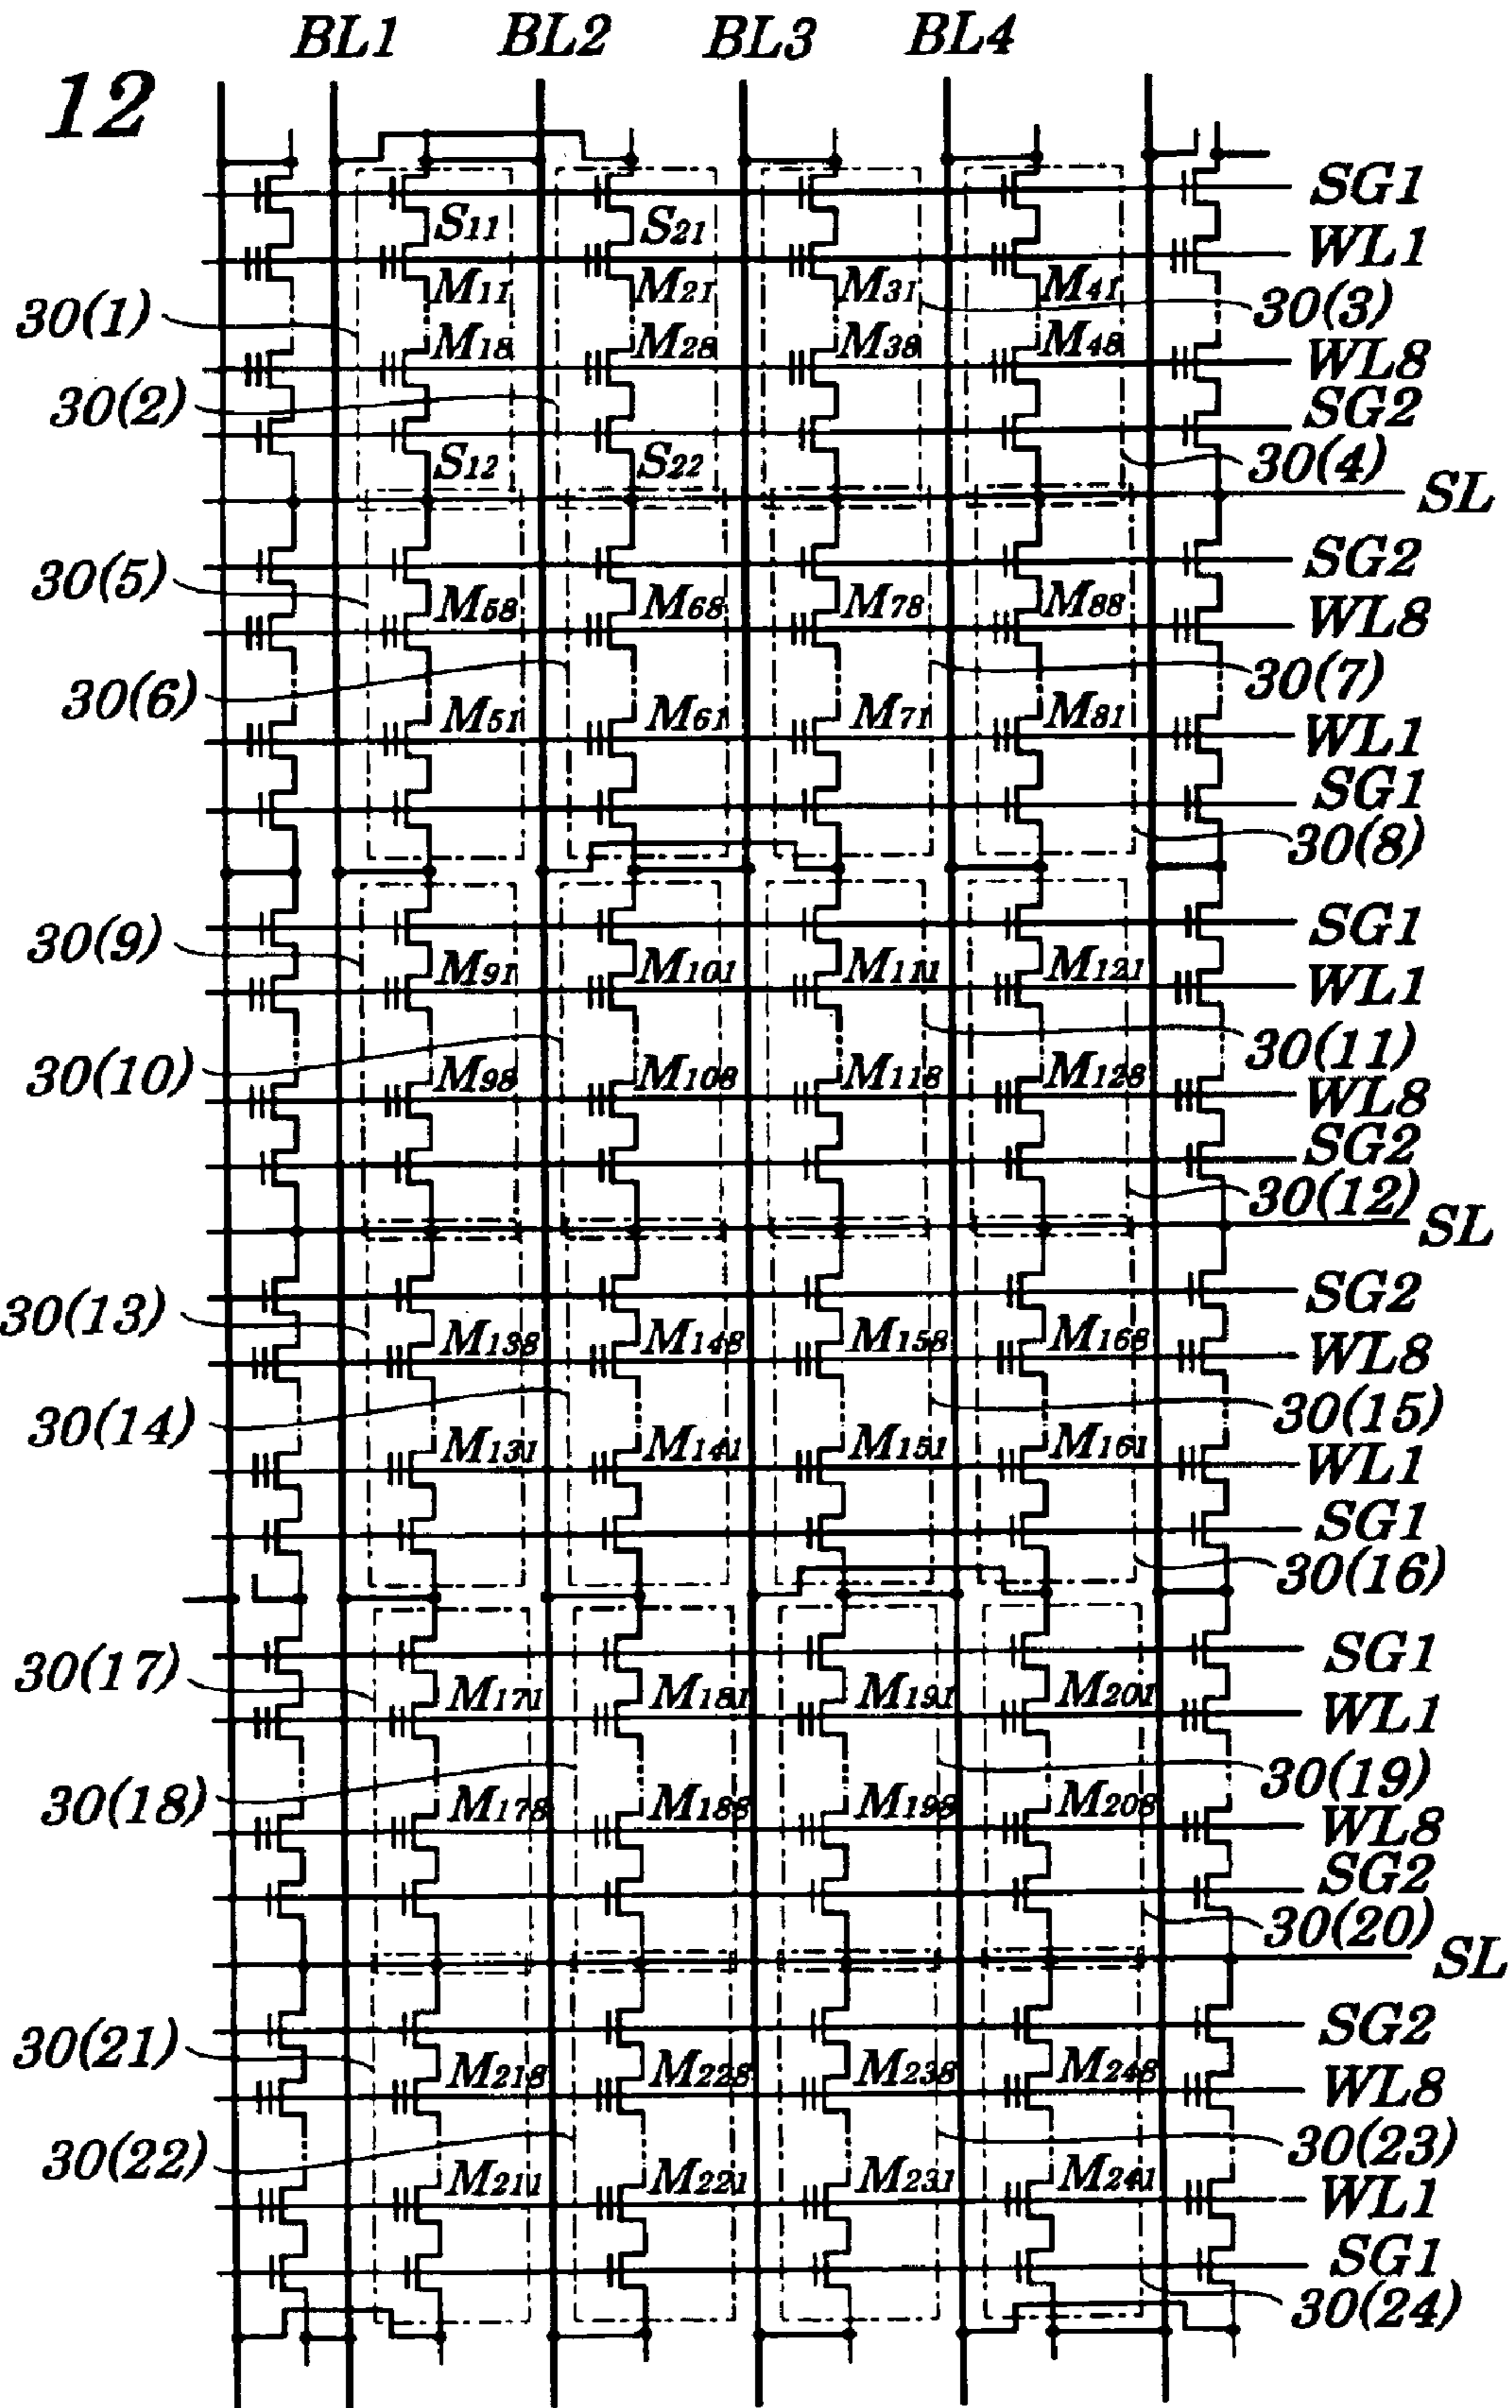 BL1 BL2 BL3 BL4
12
SG1
S11 S21
WL1
M11 M21 M31 M41
30(1) 30(3)
M18 M28 M38 M48
WL8
30(2) SG2
S12 S22 30(4)
SL
30(5) SG2
M58 M68 M78 M88
WL8
30(6) 30(7)
M51 M61 M71 M81
WL1
SG1
30(8)
30(9) SG1
M91 M101 M111 M121
WL1
30(11)
30(10) M98 M108 M118 M128
WL8
SG2
30(12)
SL
30(13) SG2
M138 M148 M158 M168
WL8
30(14) 30(15)
M131 M141 M151 M161
WL1
SG1
30(16)
30(17) SG1
M171 M181 M191 M201
WL1
30(18) 30(19)
M178 M188 M198 M208
WL8
SG2
30(20)
SL
30(21) SG2
M218 M228 M238 M248
WL8
30(22) 30(23)
M211 M221 M231 M241
WL1
SG1
30(24)